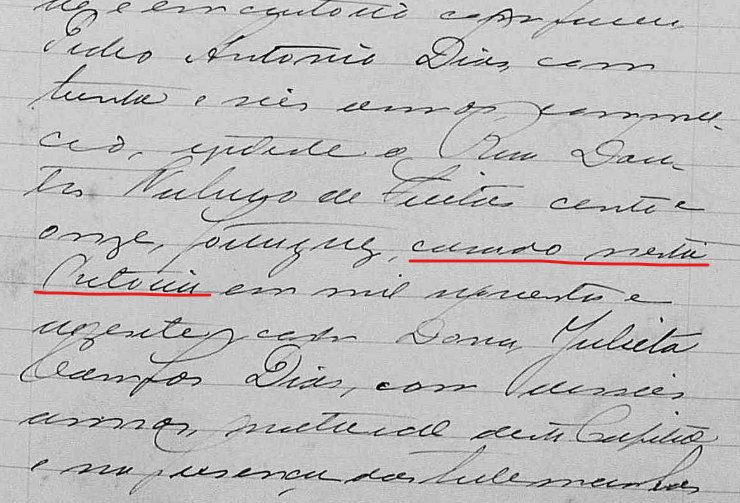 e em cartorio compareceu
Pedro Antonio Dias com
trinta e seis annos, commer-
cio, residente a Rua Dou-
tor Nabuco de Freitas cento e
onze, Portuguez, casado nesta
Pretoria em mil novecentos e
com Dona Julieta
Campos Dias, com
annos, natural desta Capital
e na presença das testemunhas